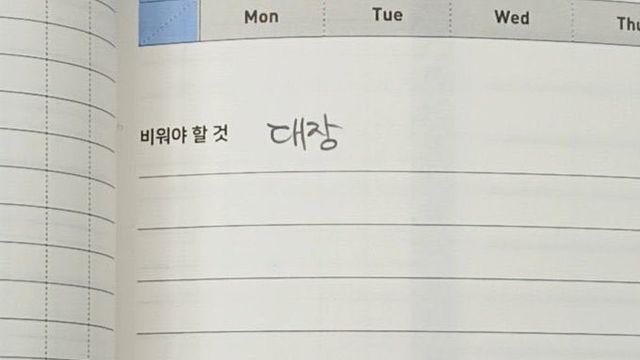 Mon Tue Wed Thu
비워야 할 것 대장